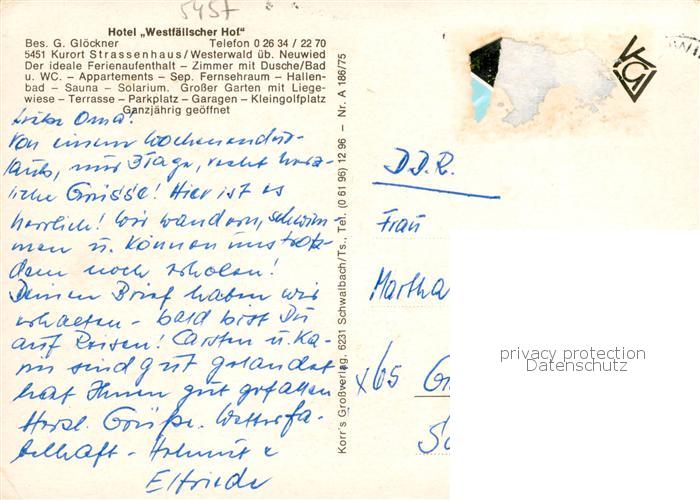 5457
Hotel „Westfälischer Hof“
Bes. G. Glöckner Telefon 0 26 34 / 22 70
5451 Kurort Strassenhaus/Westerwald üb. Neuwied
Der ideale Ferienaufenthalt – Zimmer mit Dusche/Bad
u. WC. – Appartements – Sep. Fernsehraum – Hallen-
bad – Sauna – Solarium. Großer Garten mit Liege-
wiese – Terrasse – Parkplatz – Garagen – Kleingolfplatz
Ganzjährig geöffnet
Liebe Oma!
Von einem Wochenendur-
laub, nur 3 Tage, recht herz-
liche Grüsse! Hier ist es
herrlich! Wir wandern, schwim-
men u. können uns trotz-
dem noch erholen!
Deinen Brief haben wir
erhalten – bald bist Du
auf Reisen! Carsten u. Ka-
rin sind gut gelandet
hat Ihnen gut gefallen
Herzl. Grüße. Wetter fa-
belhaft – Helmut &
Elfriede
Korr's Großverlag, 6231 Schwalbach/Ts., Tel. (0 61 96) 12 96 – Nr. A 186/75
D.D.R.
Frau
Martha
X65
privacy protection
Datenschutz